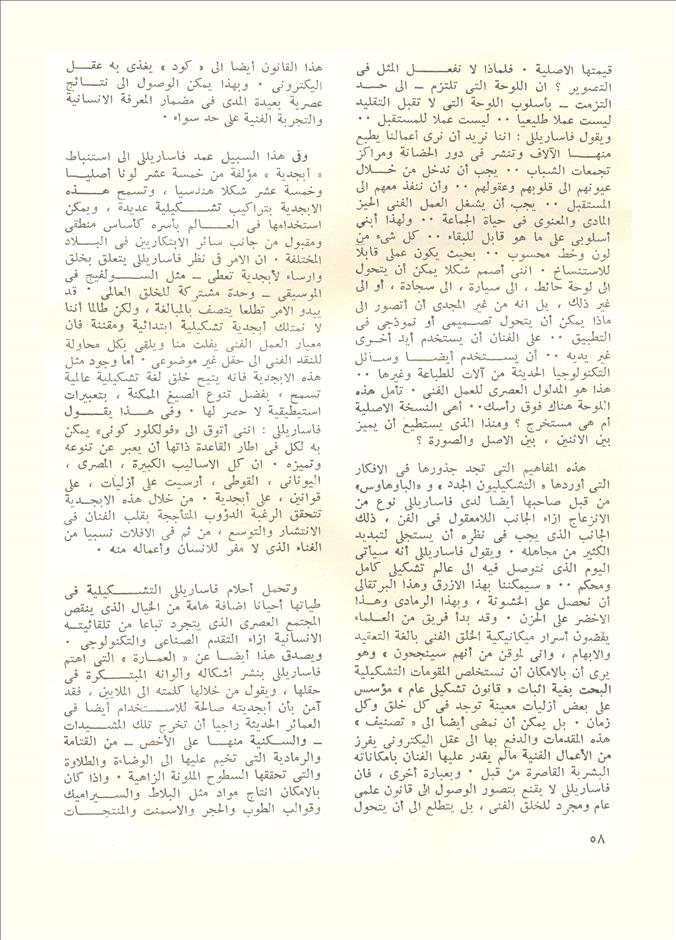 قيمتها الاصلية ٠ فلماذا لا نفعـــــل المثل فى
التصوير ؟ ان اللوحة التى تلتزم ــ الى حـــد
التزمت ــ بأسلوب اللوحة التى لا تقبل التقليد
ليست عملا طليعيا ٠٠ ليست عملا للمستقبل ٠٠
ويقول فاساريللى : اننا نريد أن نرى أعمالنا يطبع
منهـــا الآلاف وتنشر فى دور الحضانة ومراكز
تجمعات الشباب ٠٠ يجب أن ندخل من خـــلال
عيونهم الى قلوبهم وعقولهم ٠٠ وأن ننفذ معهم الى
المستقبل ٠٠ يجب أن يشغل العمل الفنى الحيز
المادى والمعنوى فى حياة الجماعة ٠٠ ولهذا أبنى
أسلوبى على ما هو قابل للبقاء ٠٠ كل شىء من
لون وخط محسوب ٠٠ بحيث يكون عملى قابلا
للاستنساخ ٠ اننى أصمم شكلا يمكن أن يتحول
الى لوحة حائط ، الى سيارة ، الى سجادة ، أو الى
غير ذلك ، بل انه من غير المجدى أن أتصور الى
ماذا يمكن أن يتحول تصميمى أو نموذجى فى
التطبيق ٠٠ على الفنان أن يستخدم أيد أخـرى
غير يديه ٠٠ أن يســـتخدم أيضـــا وســائل
التكنولوجيا الحديثة من آلات للطباعة وغيرها ٠٠
هذا هو المدلول العصرى للعمل الفنى ٠ تأمل هذه
اللوحة هناك فوق رأسك٠٠ أهى النسخة الاصلية
أم هى مستخرج ؟ ومنذا الذى يستطيع أن يميز
بين الاثنين ، بين الاصل والصورة ؟
هذه المفاهيم التى تجد جذورها فى الافكار
التى أوردها « التشكيليون الجدد » و «الباوهاوس»
من قبل صاحبها أيضا لدى فاساريللى نوع من
الانزعاج ازاء الجانب اللامعقول فى الفن ، ذلك
الجانب الذى يجب فى نظره أن يستجلى لتبديد
الكثير من مجاهله ٠ ويقول فاساريللى أنه سيأتى
اليوم الذى نتوصل فيه الى عالم تشكيلى كامل
ومحكم ٠٠ « سيمكننا بهذا الازرق وهذا البرتقالى
أن نحصل على الخشونة ، وبهذا الرمادى وهـــذا
الاخضر على الحزن ٠ وقد بدأ فريق من العلمـاء
يفضون أسرار ميكانيكية الخلق الفنى بالغة التعقيد
والابهام ، وانى لموقن من أنهم سينجحون » وهو
يرى أن بالامكان أن نستخلص المقومات التشكيلية
البحت بغية اثبات « قانون تشكيلى عام » مؤسس
على بعض أزليات معينة توجد فى كل خلق وكل
زمان ٠ بل يمكن أن نمضى أيضا الى « تصنيف »
هذه المقدمات والدفع بها الى عقل اليكترونى يفرز
من الأعمال الفنية مالم يقدر عليها الفنان بامكاناته
البشرية القاصرة من قبل ٠ وبعبارة أخرى ، فان
فاساريللى لا يقنع بتصور الوصول الى قانون علمى
عام ومجرد للخلق الفنى ، بل يتطلع الى أن يتحول
هذا القانون أيضا الى « كود » يغذى به عقــل
اليكترونى ٠ وبهذا يمكن الوصول الى نتـــائج
عصرية بعيدة المدى فى مضمار المعرفة الانسانية
والتجربة الفنية على حد سواء ٠
وفى هذا السبيل عمد فاساريللى الى استنباط
« أبجدية » مؤلفة من خمسة عشر لونا أصليـــا
وخمسة عشر شكلا هندسيا ، وتسمح هـــذه
الابجدية بتراكيب تشـــكيلية عديدة ، ويمكن
استخدامها فى العـــالم بأسره كأساس منطقى
ومقبول من جانب سائر الابتكاريين فى البــلاد
المختلفة ٠ ان الامر فى نظر فاساريللى يتعلق بخلق
وارساء لأبجدية تعطى ــ مثل الســولفيج فى
الموسيقى ــ وحدة مشتركة للخلق العالمى ٠ قد
يبدو الامر تطلعا يتصف بالمبالغة ، ولكن طالما أننا
لا نمتلك أبجدية تشكيلية ابتدائية ومقننة فان
معيار العمل الفنى يفلت منا ويلقى بكل محاولة
للنقد الفنى الى حقل غير موضوعى ٠ أما وجود مثل
هذه الابجدية فانه يتيح خلق لغة تشكيلية عالمية
تسمح ، بفضل تنوع الصيغ الممكنة ، بتعبيرات
استيطيقية لا حصر لها ٠ وفى هـــذا يقـــول
فاساريللى : اننى أتوق الى «فولكلور كونى» يمكن
به لكل فى اطار القاعدة ذاتها أن يعبر عن تنوعه
وتميزه ٠ ان كل الاساليب الكبيرة ، المصرى ،
اليونانى ، القوطى ، أرسيت على أزليات ، على
قوانين ، على أبجدية ٠ من خلال هذه الابجــدية
تتحقق الرغبة الدؤوب المتأججة بقلب الفنان فى
الانتشار والتوسع ، من ثم فى الافلات نسبيا من
الفناء الذى لا مفر للانسان وأعماله منه ٠
وتحمل أحلام فاساريللى التشـــكيلية فى
طياتها أحيانا اضافة هامة من الخيال الذى ينقص
المجتمع العصرى الذى يتجرد تباعا من تلقائيتــه
الانسانية ازاء التقدم الصناعى والتكنولوجى ٠
ويصدق هذا أيضـــا عن « العمــارة » التى اهتم
فاساريللى بنشر أشكاله وألوانه المبتـــكرة فى
حقلها ، ويقول من خلالها كلمته الى الملايين ، فقد
آمن بأن أبجديته صالحة للاســـتخدام أيضا فى
العمائر الحديثة راجيا أن تخرج تلك المشـــيدات
ــ والسكنية منهـــا على الأخص ــ من القتامة
والرمادية التى تخيم عليها الى الوضاءة والطلاوة
والتى تحققها السطوح الملونة الزاهية ٠ واذا كان
بالامكان انتاج مواد مثل البلاط والســـيراميك
وقوالب الطوب والحجر والاسمنت والمنتجـــات
٥٨